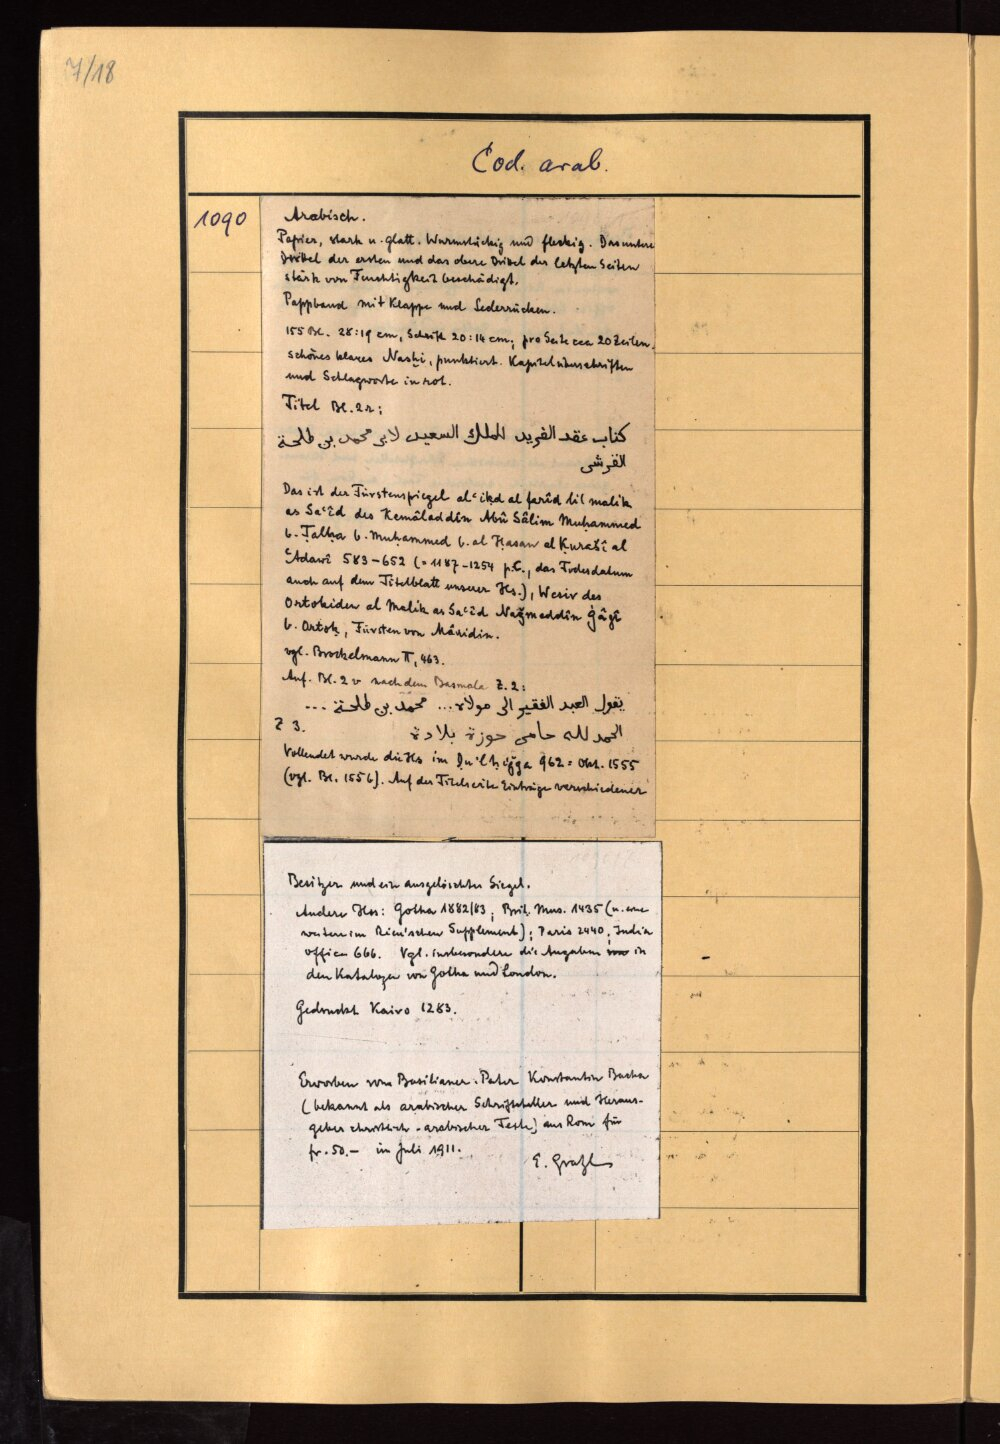 7/18
Cod. arab.
1090
Arabisch.
Papier, stark u. glatt. Wurmstichig und fleckig. Das untere
Drittel der ersten und das obere Drittel der letzten Seiten
stark von Feuchtigkeit beschädigt.
Pappband mit Klappe und Lederrücken.
155 Bl. 28:19 cm, Schrift 20:14 cm; pro Seite cca 20 Zeilen.
schönes klares Nasḫi, punktiert. Kapitelüberschriften
und Schlagworte in rot.
Titel Bl. 2r:
كتاب عقد الفريد للملك السعيد لابى محمد بن طلحة
القرشى
Das ist der Fürstenspiegel al ʿiḳd al farîd lil malik
as Saʿîd des Kemâladdîn Abû Sâlim Muḥammed
b. Ṭalḥa b. Muḥammed b. al Ḥasan al Ḳurašî al
ʿAdawî 583-652 (= 1187-1254 p.C., das Todesdatum
auch auf dem Titelblatt unserer Hs.), Wesir des
Ortokiden al Malik as Saʿîd Naǧmeddîn Ġâzî
b. Ortoḳ, Fürsten von Mâridîn.
vgl. Brockelmann II, 463.
Anf. Bl. 2v nach dem Basmala Z. 2:
يقول العبد الفقير الى مولاه... محمد بن طلحة ...
Z 3.
الحمد لله حامى حوزة بلاده
Vollendet wurde die Hs im Ḏu'lḥiǧǧa 962 = Okt. 1555
(vgl. Bl. 155b). Auf der Titelseite Einträge verschiedener
Besitzer und ein ausgelöschtes Siegel.
Andere Hss: Gotha 1882/83; Brit. Mus. 1435 (u. eine
weitere im Rieu'schen Supplement); Paris 2440; India
office 666. Vgl. insbesondere die Angaben in
den Katalogen von Gotha und London.
Gedruckt Kairo 1283.
Erworben vom Basilianer-Pater Konstantin Bacha
(bekannt als arabischer Schriftsteller und Heraus-
geber christlich-arabischer Texte) aus Rom für
fr. 50.- im Juli 1911.
E. Gratzl